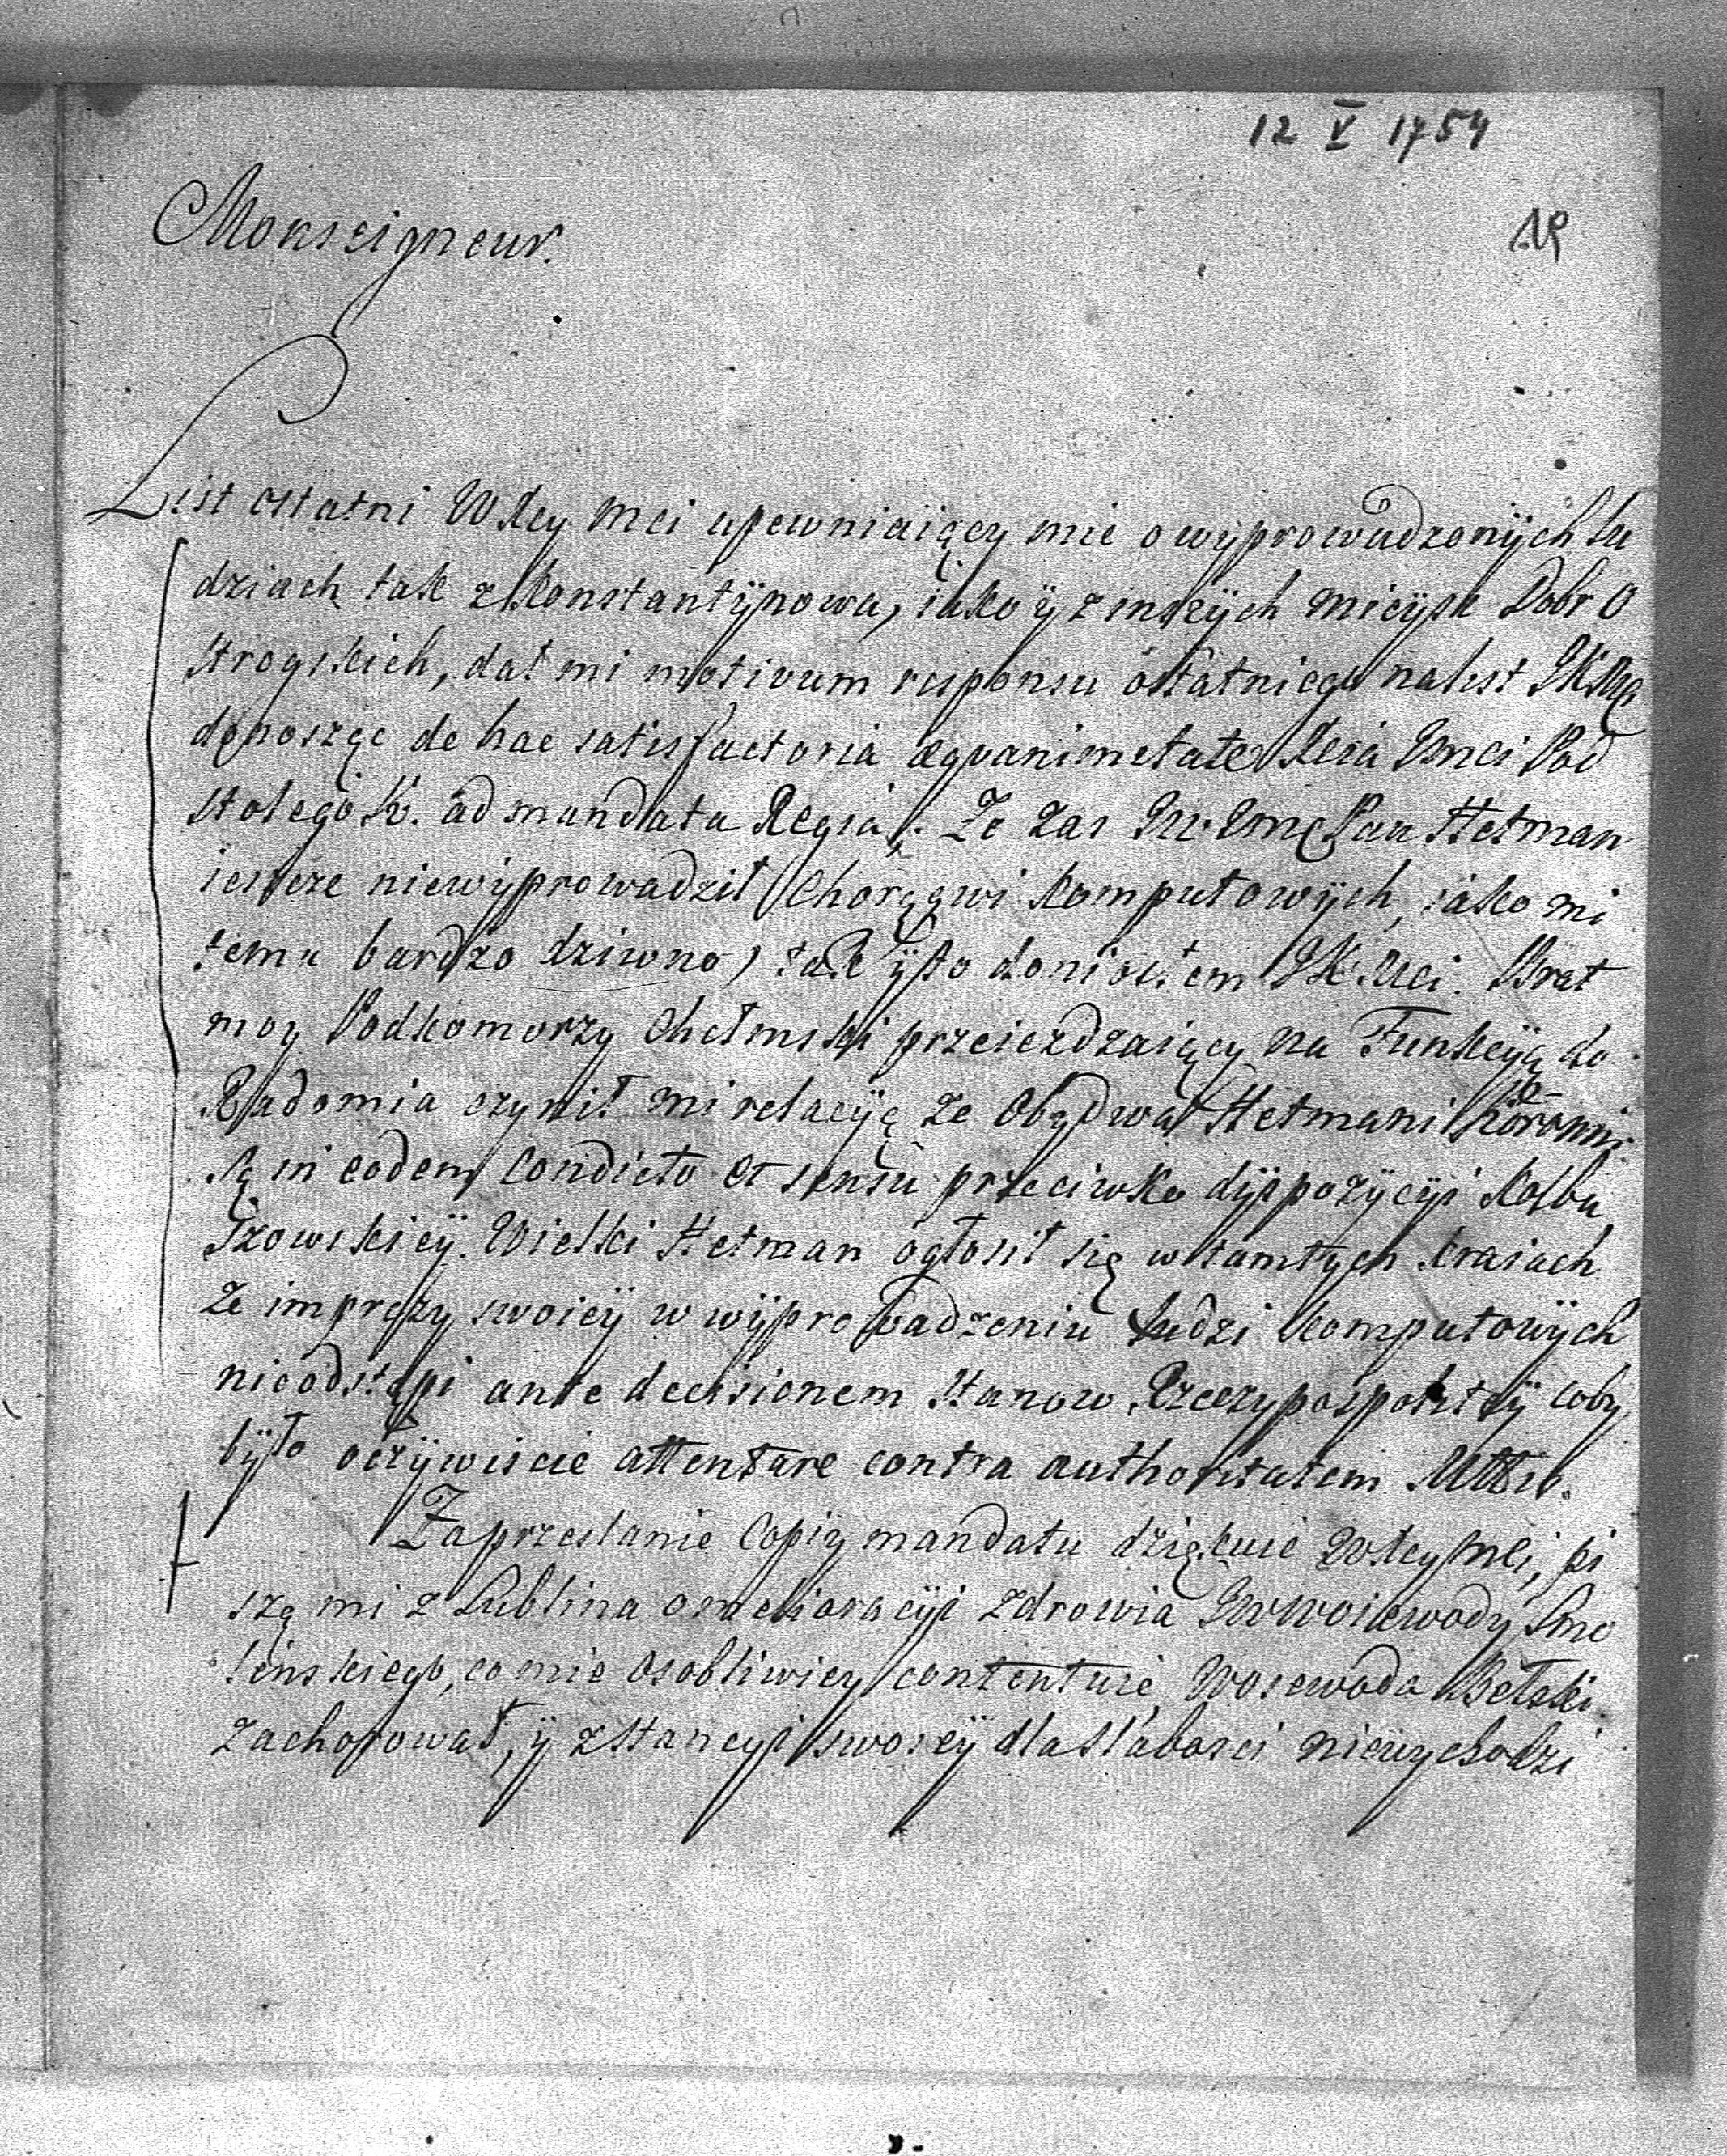 12 V 1754
19
Monseigneur.
List ostatni WKcy Mci upewniaiący mie o wyprowadzonÿch lu
dziach tak z Konstantÿnowa, iako ÿ z inszÿch mieÿsc Dobr O
strogskich, dał mi motivum responsu ostatniego na list JKMci
donosząc de hac satisfactoria aequanimitate Xcia Jmci Pod
stolego K. ad mandata Regia. Ze zas JW Jmc Pan Hetman
ieszcze niewÿprowadził Chorągwi Komputowÿch, iako mi
temu bardzo dziwno, tak ÿ to doniosłem JKMci. Brat
moy Podkomorzy Chełmski przeiezdzaiący na Funkcyią do
Radomia czynił mi relacyią ze Obydwa Hetmani Koronni
są in eodem Condicto et sensu przeciwko dÿspozÿcyi Kolbu
szowskieÿ. Wielki Hetman ogłosił się w tamtych kraiach
ze imprezy swoieÿ w wÿprowadzeniu Ludzi Komputowÿch
nieodstąpi ante decisionem Stanow Rzeczypospoliteÿ coby
bÿło oczÿwiscie attentare contra authoritatem
Za przesłanie Copiy mandatu dziękuie WKcy Mci, pi
szą mi z Lublina o melioracyi zdrowia JW Woiewody Smo
lenskiego, co mie osobliwiey contentuie, Woiewoda Bełski
zachorował, ÿ z Stancyi swoieÿ dla słabosci niewychodzi